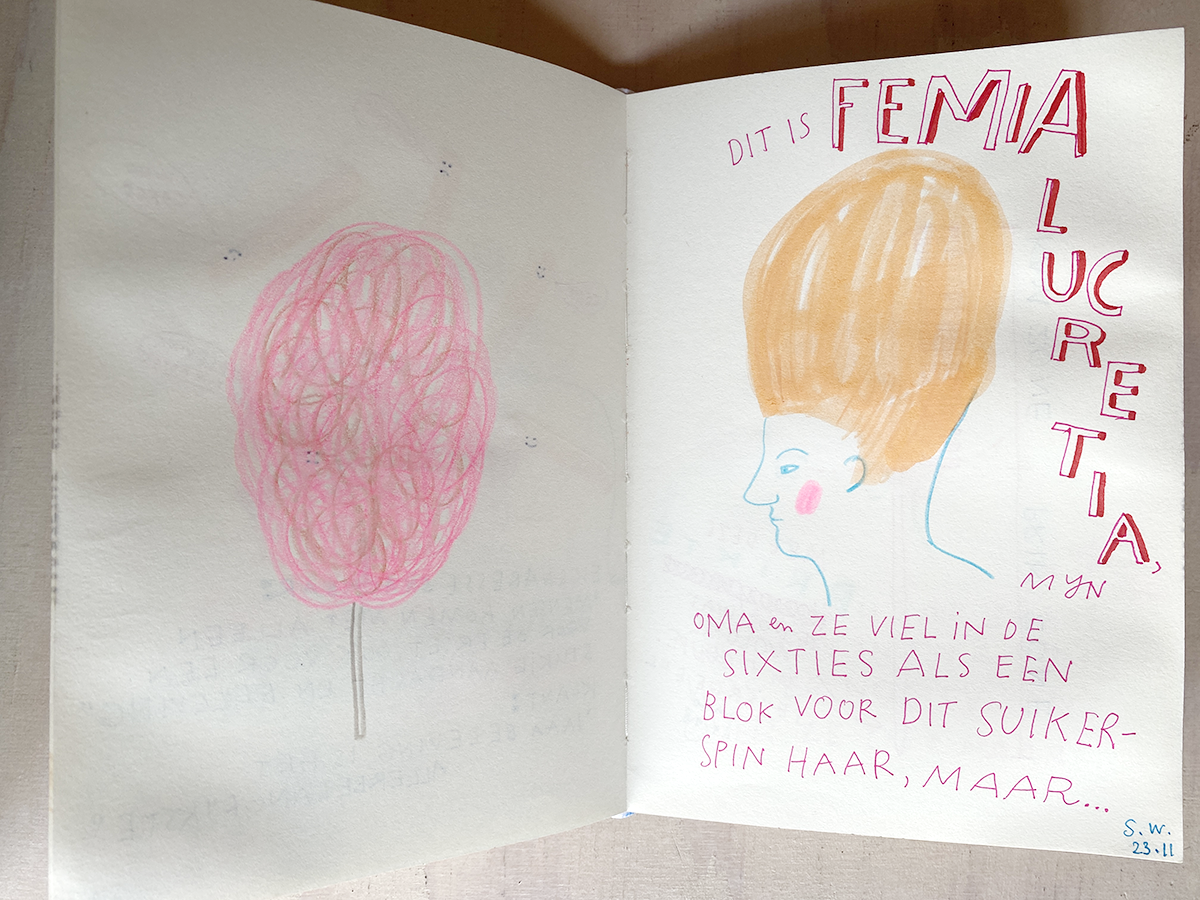 DIT IS FEMIA
LUCRETIA,
MYN
OMA en ZE VIEL IN DE
SIXTIES ALS EEN
BLOK VOOR DIT SUIKER-
SPIN HAAR, MAAR...
S.W.
23.11